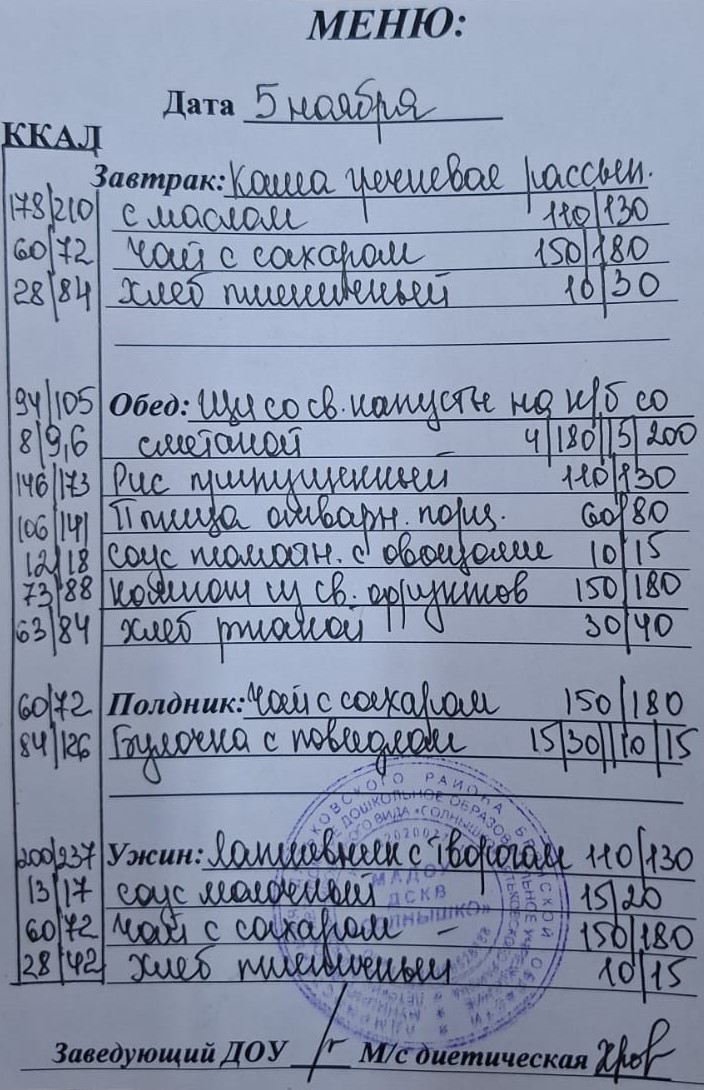 МЕНЮ:
Дата 5 ноября
ККАЛ
Завтрак: Каша гречневая рассып.
178/210 с маслом 110/130
60/72 Чай с сахаром 150/180
28/84 Хлеб пшеничный 10/30
94/105 Обед: Щи со св. капусты на к/б со
8/9,6 сметаной 4/180//5/200
146/173 Рис припущенный 110/130
106/141 Птица отварн. порц. 60/80
12/18 соус томатн. с овощами 10/15
73/88 компот из св. фруктов 150/180
63/84 хлеб ржаной 30/40
60/72 Полдник: Чай с сахаром 150/180
84/126 Булочка с повидлом 15/30//10/15
200/237 Ужин: Лапшевник с творогом 110/130
13/17 соус молочный 15/20
60/72 Чай с сахаром – 150/180
28/42 Хлеб пшеничный 10/15
МАДОУ
ДСКВ
«СОЛНЫШКО»
Заведующий ДОУ М/с диетическая